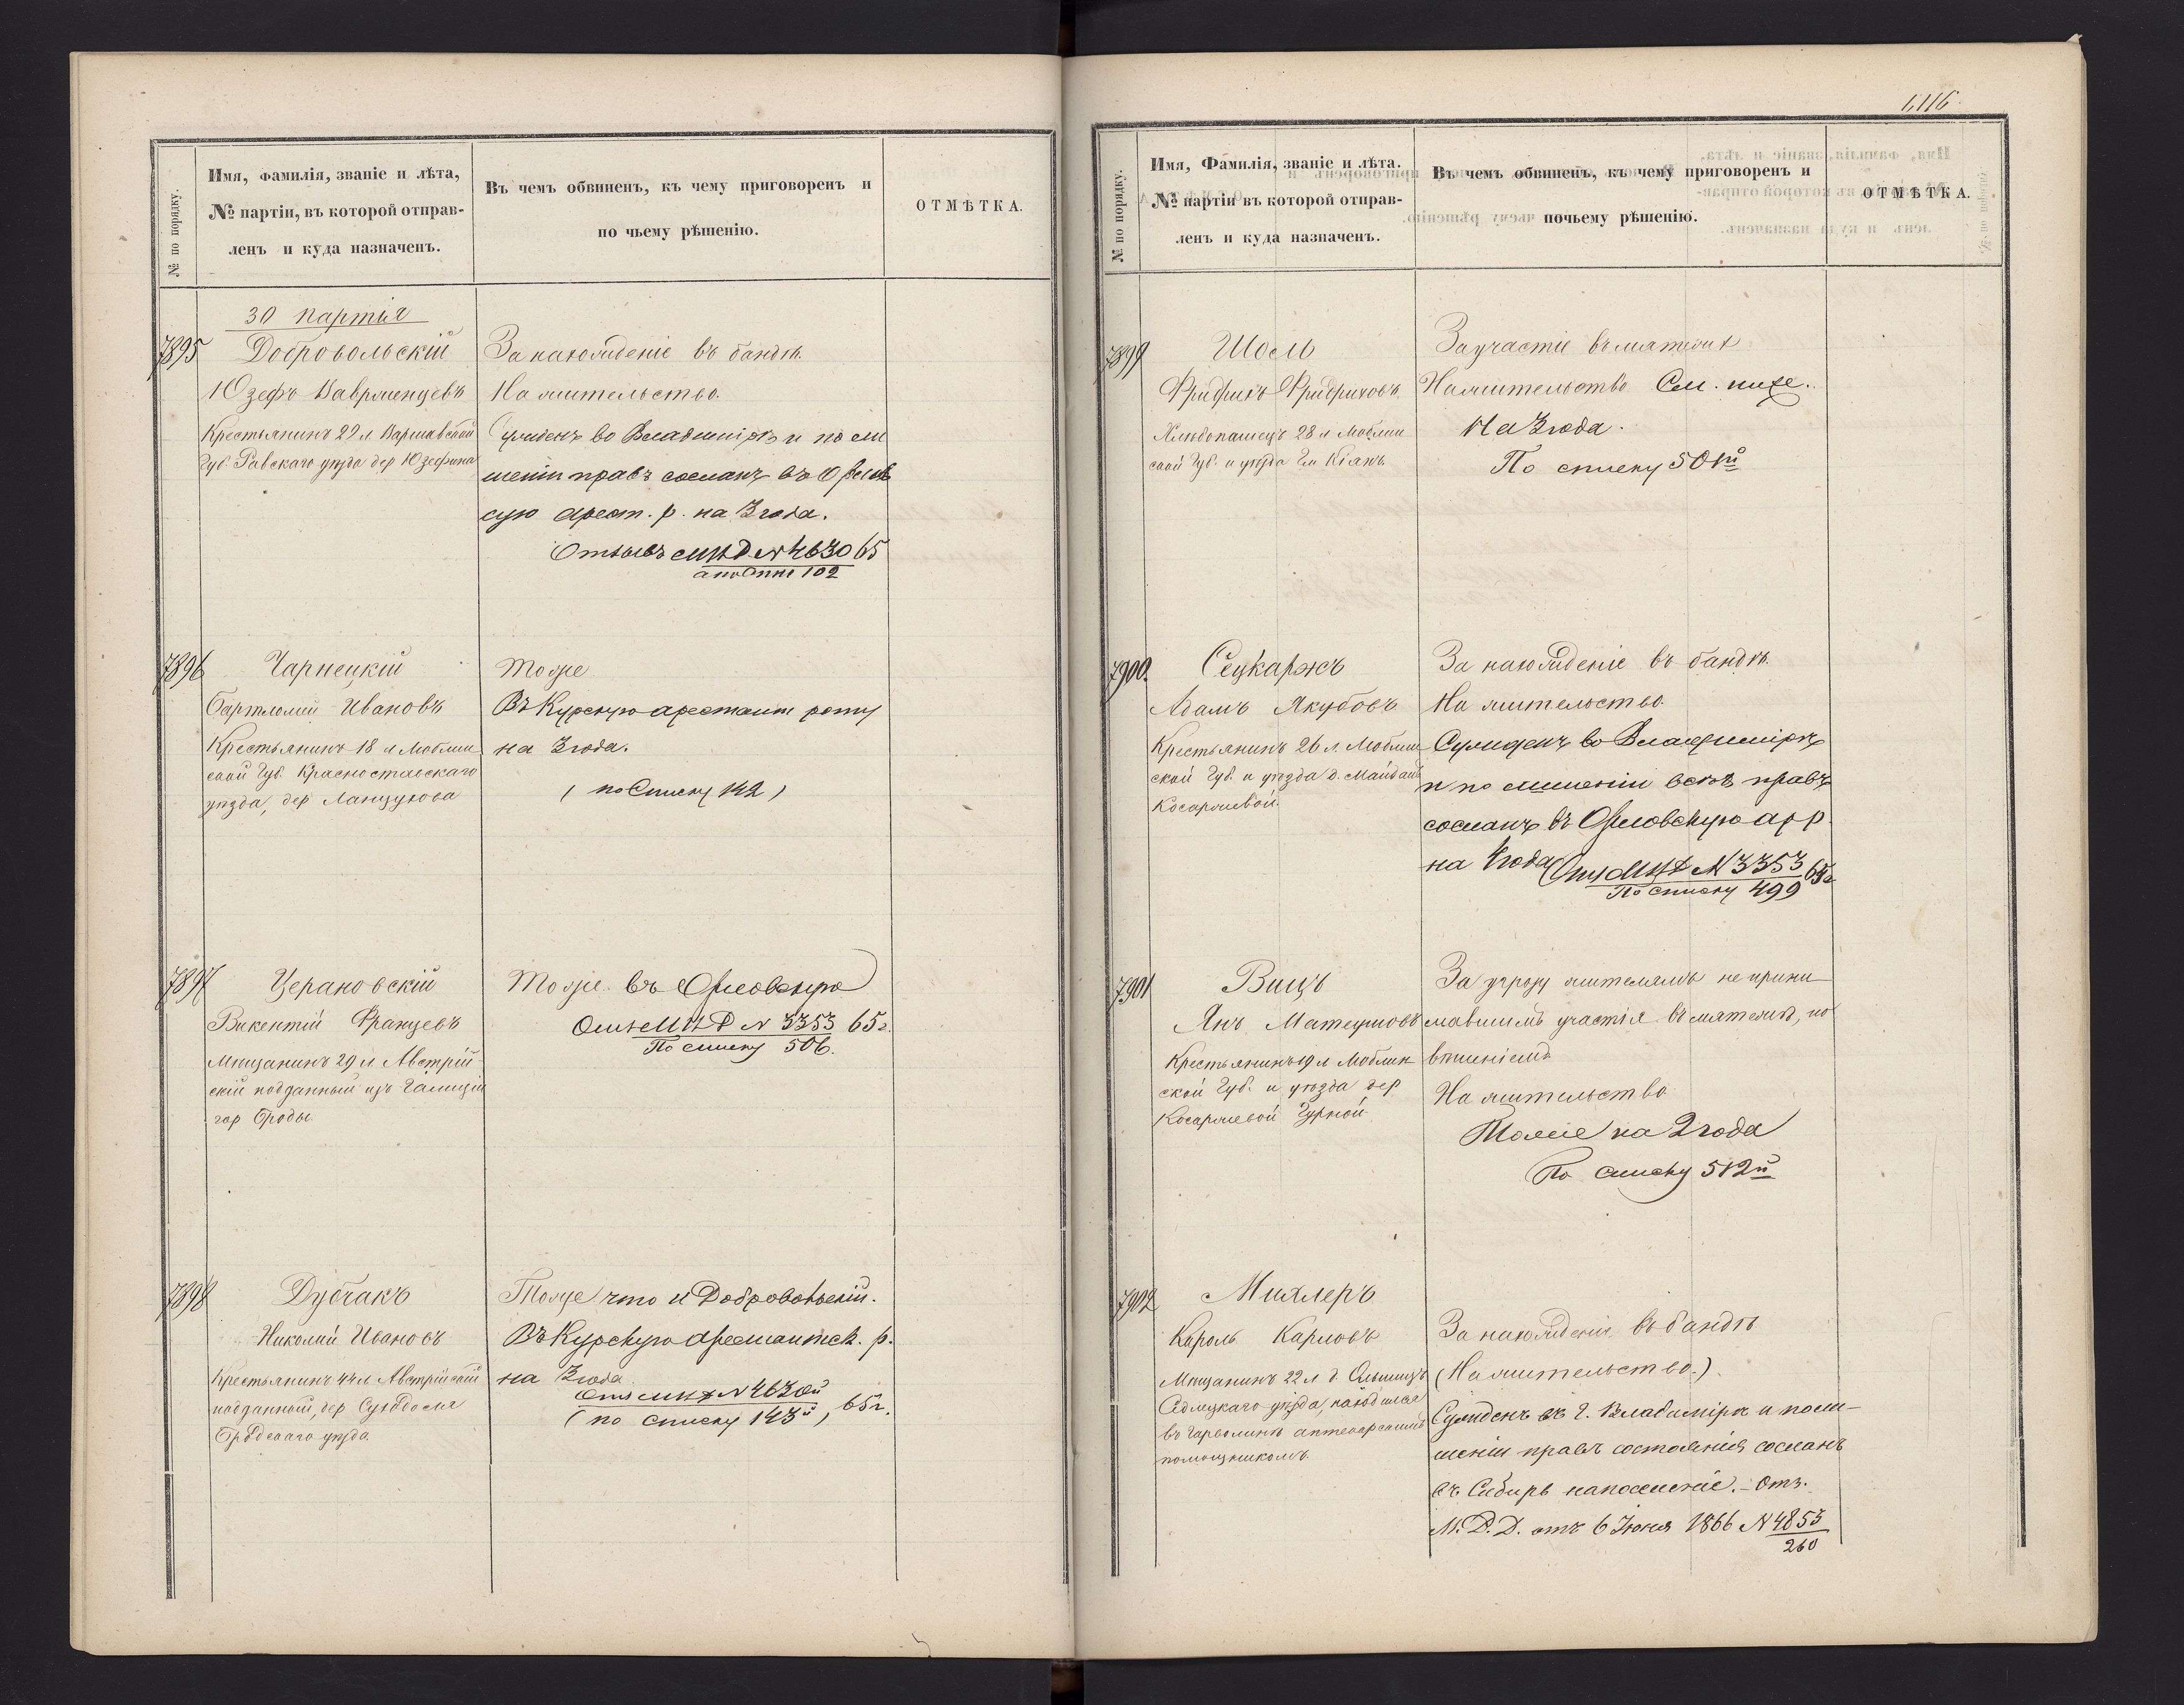 № по порядку.
Имя, фамилія, званіе и лѣта,
№ партіи, въ которой отправ-
ленъ и куда назначенъ.
Въ чемъ обвиненъ, къ чему приговоренъ и
по чьему рѣшенію.
ОТМѢТКА.
30 партія
7895
Добровольскій
Юзефъ Вавржинцевъ
Крестьянинъ 22 л Варшавской
Губ. Равскаго уѣзда дер Юзефина
За нахожденіе въ бандѣ.
На жительство.
Сужденъ во Владимірѣ и по ли
шеніи правъ сосланъ въ Орлов
скую арест. р. на 3 года.
Отзывъ МВД № 4630 65
102
7896
Чарнецкій
Бартломей Ивановъ
Крестьянинъ 18 л Люблин
ской Губ. Красноставскаго
уѣзда, дер Ланцухова
Тоже
Въ Курскую арестант роту
на 3 года.
( по списку 142 )
7897
Церановскій
Викентій Францевъ
Мѣщанинъ 29 л Австрій-
скій подданный изъ Галиціи
гор Броды.
Тоже. въ Орловскую
Отз МВД № 3353 65 г.
По списку 506.
7898
Дубчакъ
Николай Ивановъ
Крестьянинъ 44 л Австрійскій
подданный, дер
Бродскаго уѣзда
Тоже что и Добровольскій.
Въ Курскую арестантск. р.
на 3 года
Отз МВД № 4630й 65 г.
( по списку 143й )
1,116.
№ по порядку.
Имя, Фамилія, званіе и лѣта.
№ партіи въ которой отправ-
ленъ и куда назначенъ.
Въ чемъ обвиненъ, къ чему приговоренъ и
почьему рѣшенію.
ОТМѢТКА.
7899
Шоль
Фридрихъ Фридриховъ
Хлѣбопашецъ 28 л Люблин
ской Губ. и уѣзда Гм Кіянъ
За участіе въ мятежѣ
На жительство См. ниже.
На 3 года.
По списку 501й
7900.
Сецкаржъ
Адамъ Якубовъ
Крестьянинъ 26 л. Люблин
ской Губ. и уѣзда д. Майданъ
Косаржевой.
За нахожденіе въ бандѣ.
На жительство.
Сужденъ во Владимірѣ
и по лишеніи всѣхъ правъ
сосланъ въ Орловскую ар р.
на 4 года Отз МВД № 3353 65 г
По списку 499
7901
Вицъ
Янъ Матеушовъ
Крестьянинъ 19 л Люблин
ской Губ. и уѣзда дер
Косаржевой Гурной
За угрозу жителямъ не прини
мавшимъ участія въ мятежѣ, по
вѣшеніемъ
На жительство.
Тоже на 2 года
По списку 512й
7902
Михлеръ
Кароль Карловъ
Мѣщанинъ 22 л д.
Сѣдлецкаго уѣзда, находился
въ Гарволинѣ аптекарскимъ
помощникомъ.
За нахожденіе въ бандѣ
(На жительство.)
Сужденъ въ г. Владимірѣ и по ли-
шеніи правъ состоянія сосланъ
въ Сибирь на поселеніе. – Отз.
М. В. Д. отъ 6 Іюня 1866 № 4853
260